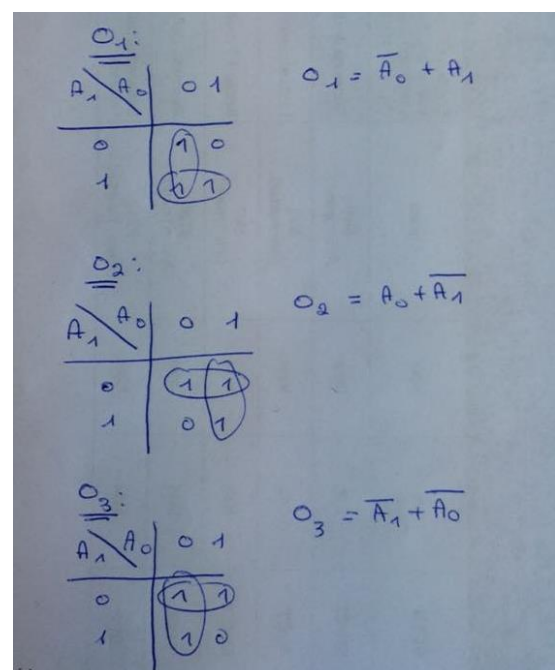 O₁:
A₁ \ A₀ | 0 1
0 | 1 0
1 | 1 1
O₁ = A̅₀ + A₁
O₂:
A₁ \ A₀ | 0 1
0 | 1 1
1 | 0 1
O₂ = A₀ + A̅₁
O₃:
A₁ \ A₀ | 0 1
0 | 1 1
1 | 1 0
O₃ = A̅₁ + A̅₀